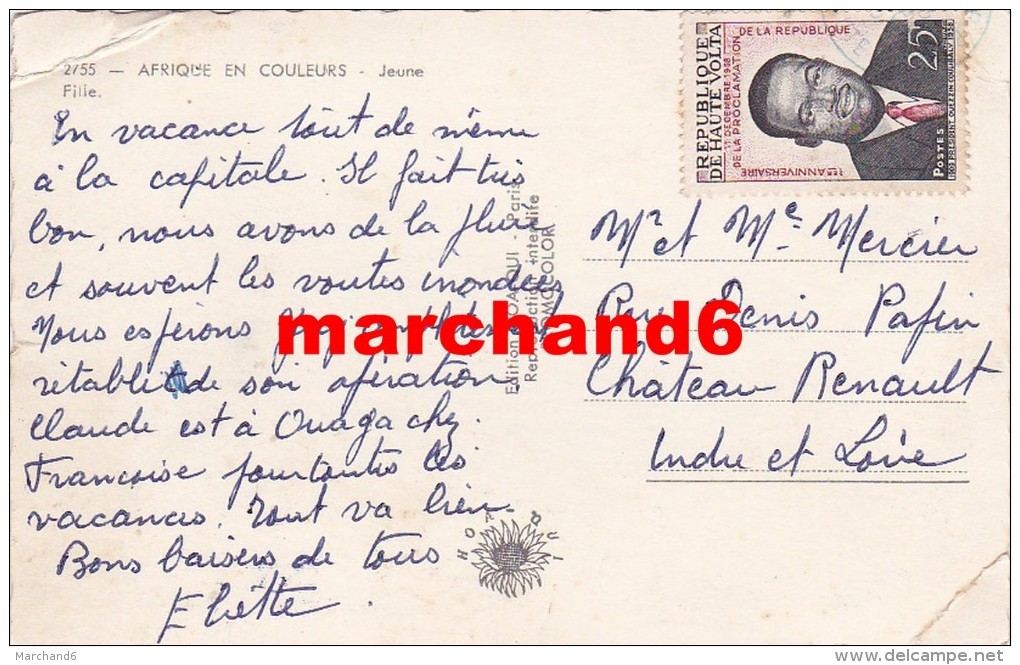 2755 — AFRIQUE EN COULEURS - Jeune
Fille.
En vacance tout de même
à la capitale. Il fait très
bon, nous avons de la pluie
et souvent les routes inondées
Nous espérons
rétablie de son opération
Claude est à Ouaga chez
Françoise pour toutes les
vacances. Tout va bien.
Bons baisers de tous
Eliette.
Edition HOA-QUI - Paris
Reproduction interdite
HOA QUI
REPUBLIQUE
DE HAUTE VOLTA
11 DECEMBRE 1958
1er ANNIVERSAIRE DE LA PROCLAMATION DE LA REPUBLIQUE
25F
POSTES
Mr et Me Mercier
Rue Denis Papin
Château Renault
Indre et Loire
marchand6
Marchand6
delcampe.net